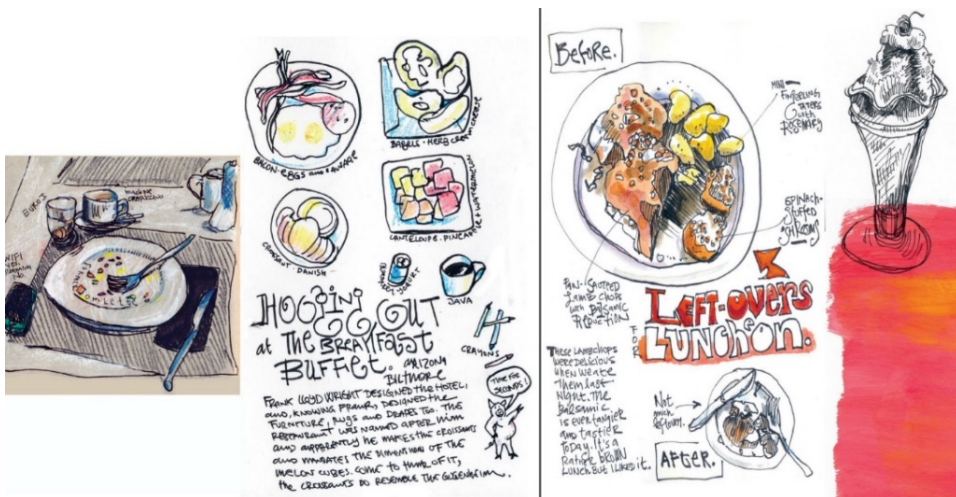 BACON·EGGS and SAUSAGE
BAGELS · HERB CREAM CHEESE
CROISSANT DANISH
CANTELOUPE · PINEAPPLE + WATERMELON
JAVA
CRAYONS
HOGGING OUT
at The BREAKFAST
BUFFET.
ARIZONA
BILTMORE
TIME FOR
SECONDS!
FRANK LLOYD WRIGHT DESIGNED the HOTEL;
and, KNOWING FRANK, DESIGNED the
FURNITURE, RUGS and DRAPES TOO. THE
RESTAURANT WAS NAMED AFTER HIM
and APPARENTLY he MAKES the CROISSANTS
and MANDATES The DIMENSIONS OF THE
MELON CUBES. COME TO THINK OF IT,
the CROISSANTS DO RESEMBLE THE GUGGENHEIM.
Before.
MINI
FINGERLING
TATERS
with
ROSEMARY
SPINACH-
STUFFED
SHROOMS
PAN-SAUTEED
LAMB CHOPS
with BALSAMIC
REDUCTION
LEFT-OVERS
FOR
LUNCHEON.
These LAMBCHOPS
WERE DELICIOUS
WHEN WE ATE
Them LAST
NIGHT. THE
BALSAMIC
IS EVEN TANGIER
and TASTIER
TODAY. IT'S A
RATHER BROWN
LUNCH BUT I LIKED IT.
Not
much
leftover.
AFTER.